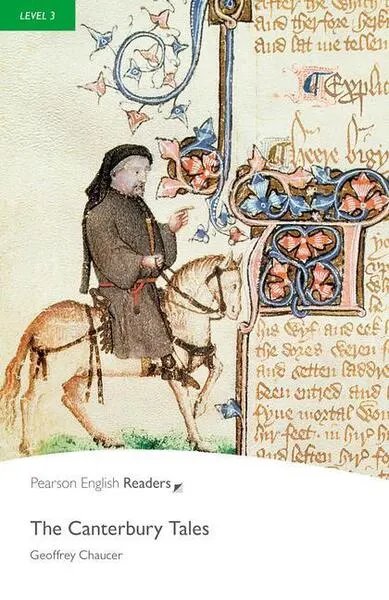 LEVEL 3
after the
and therfore
and lat me tellen
Explic
Heere bigy
his Wyf and eek
the dores weren
and getten laddre
been entred and
fyue mortal Wo
hir feet in hir
and leften hir fo
Pearson English Readers
The Canterbury Tales
Geoffrey Chaucer